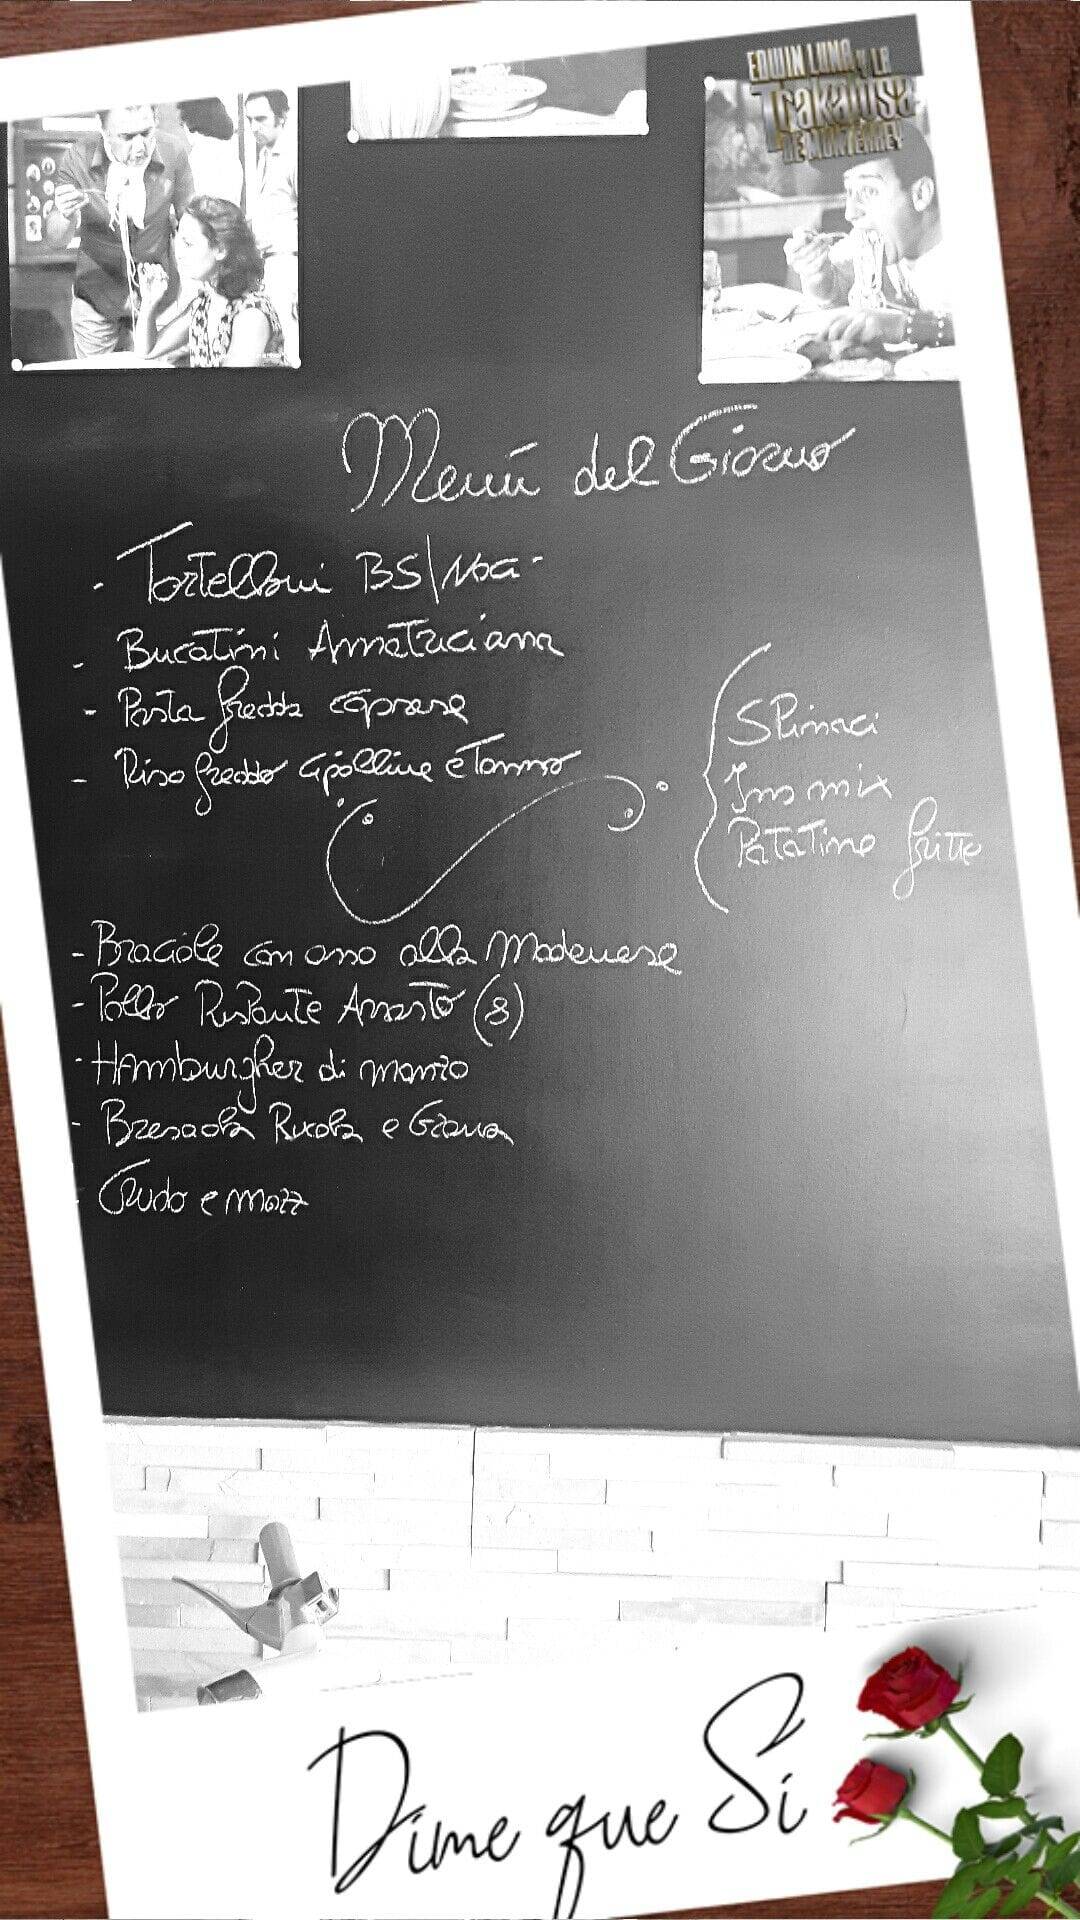 EDWIN LUNA Y LA
Trakalosa
DE MONTERREY
Menù del Giorno
- Tortelloni BS/Noci -
- Bucatini Amatriciana
- Pasta fredda caprese
- Riso freddo Gipolline e Tonno
Spinaci
Ins mix
Patatine fritte
- Braciole con osso alla Modenese
- Pollo Ruspante Arrosto (8)
- HAmburgher di manzo
- Bresaola Rucola e Grana
- Crudo e Mozz
Dime que Si